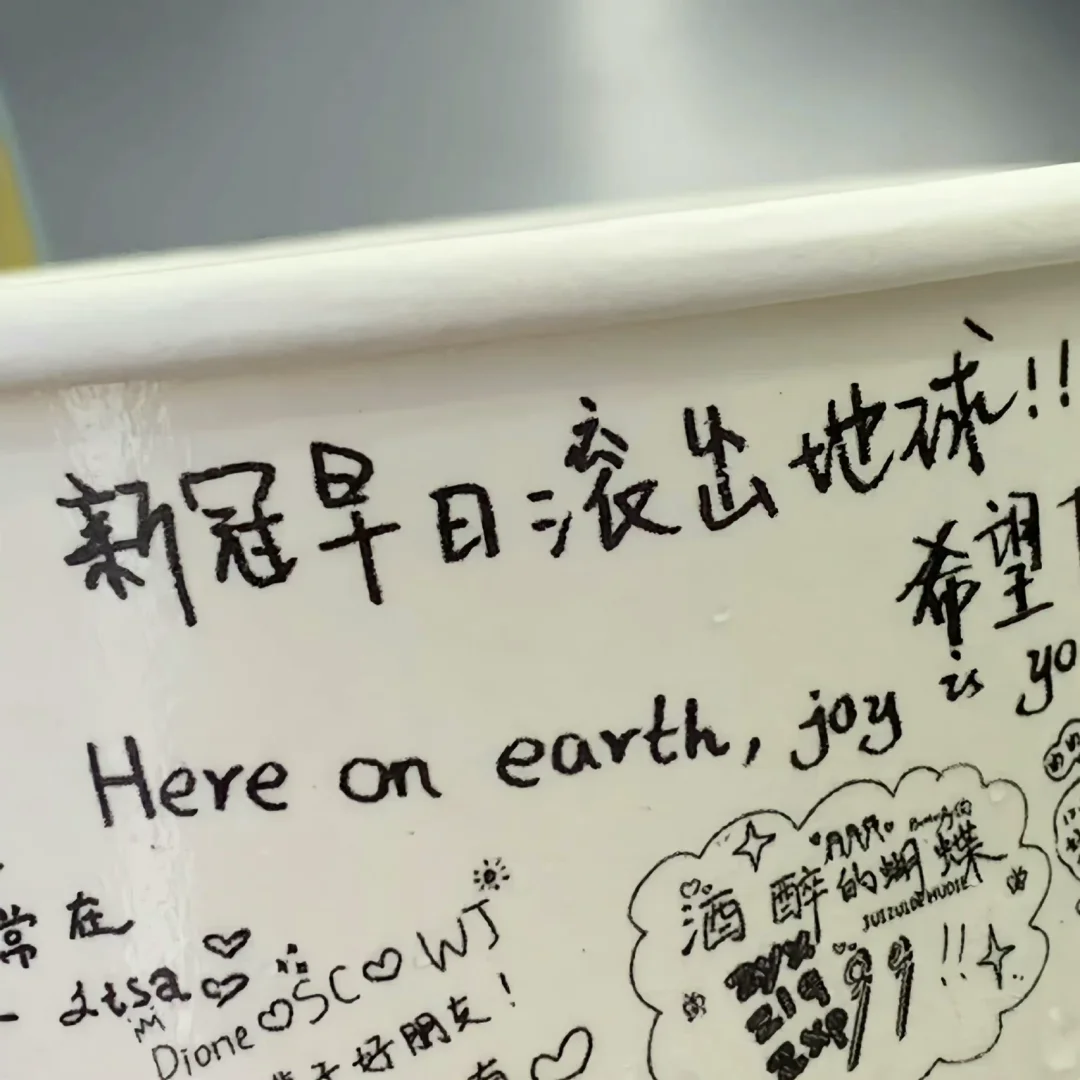 新冠早日滚出地球!!
希望
Here on earth, joy is yo
酒醉的蝴蝶
99!!
常在
Dione♡SC♡WJ
好朋友!
有